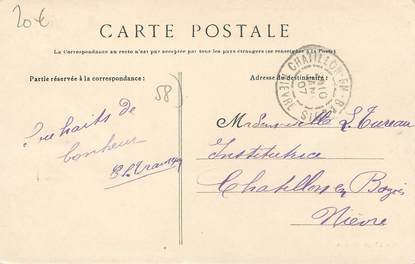 20€
CARTE POSTALE
La Correspondance au recto n'est pas acceptée par tous les pays étrangers (se renseigner à la Poste).
Partie réservée à la correspondance:
Adresse du destinataire.
CHATILLON-EN-B
NIEVRE
07
58)
Souhaits de
bonheur
Mademoiselle L. Tureau
Institutrice
Chatillon en Bazois
Nièvre